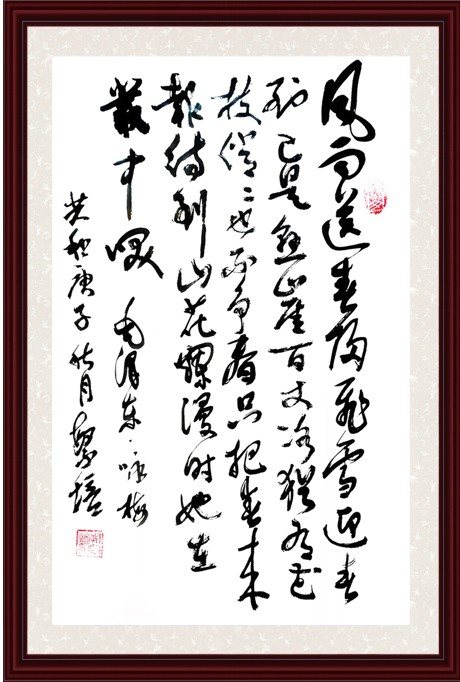 风雨送春归飞雪迎春
到已是悬崖百丈冰犹有花
枝俏〻也不争春只把春来
報待到山花烂漫时她在
叢中咲 毛泽东·咏梅
庚子秋月